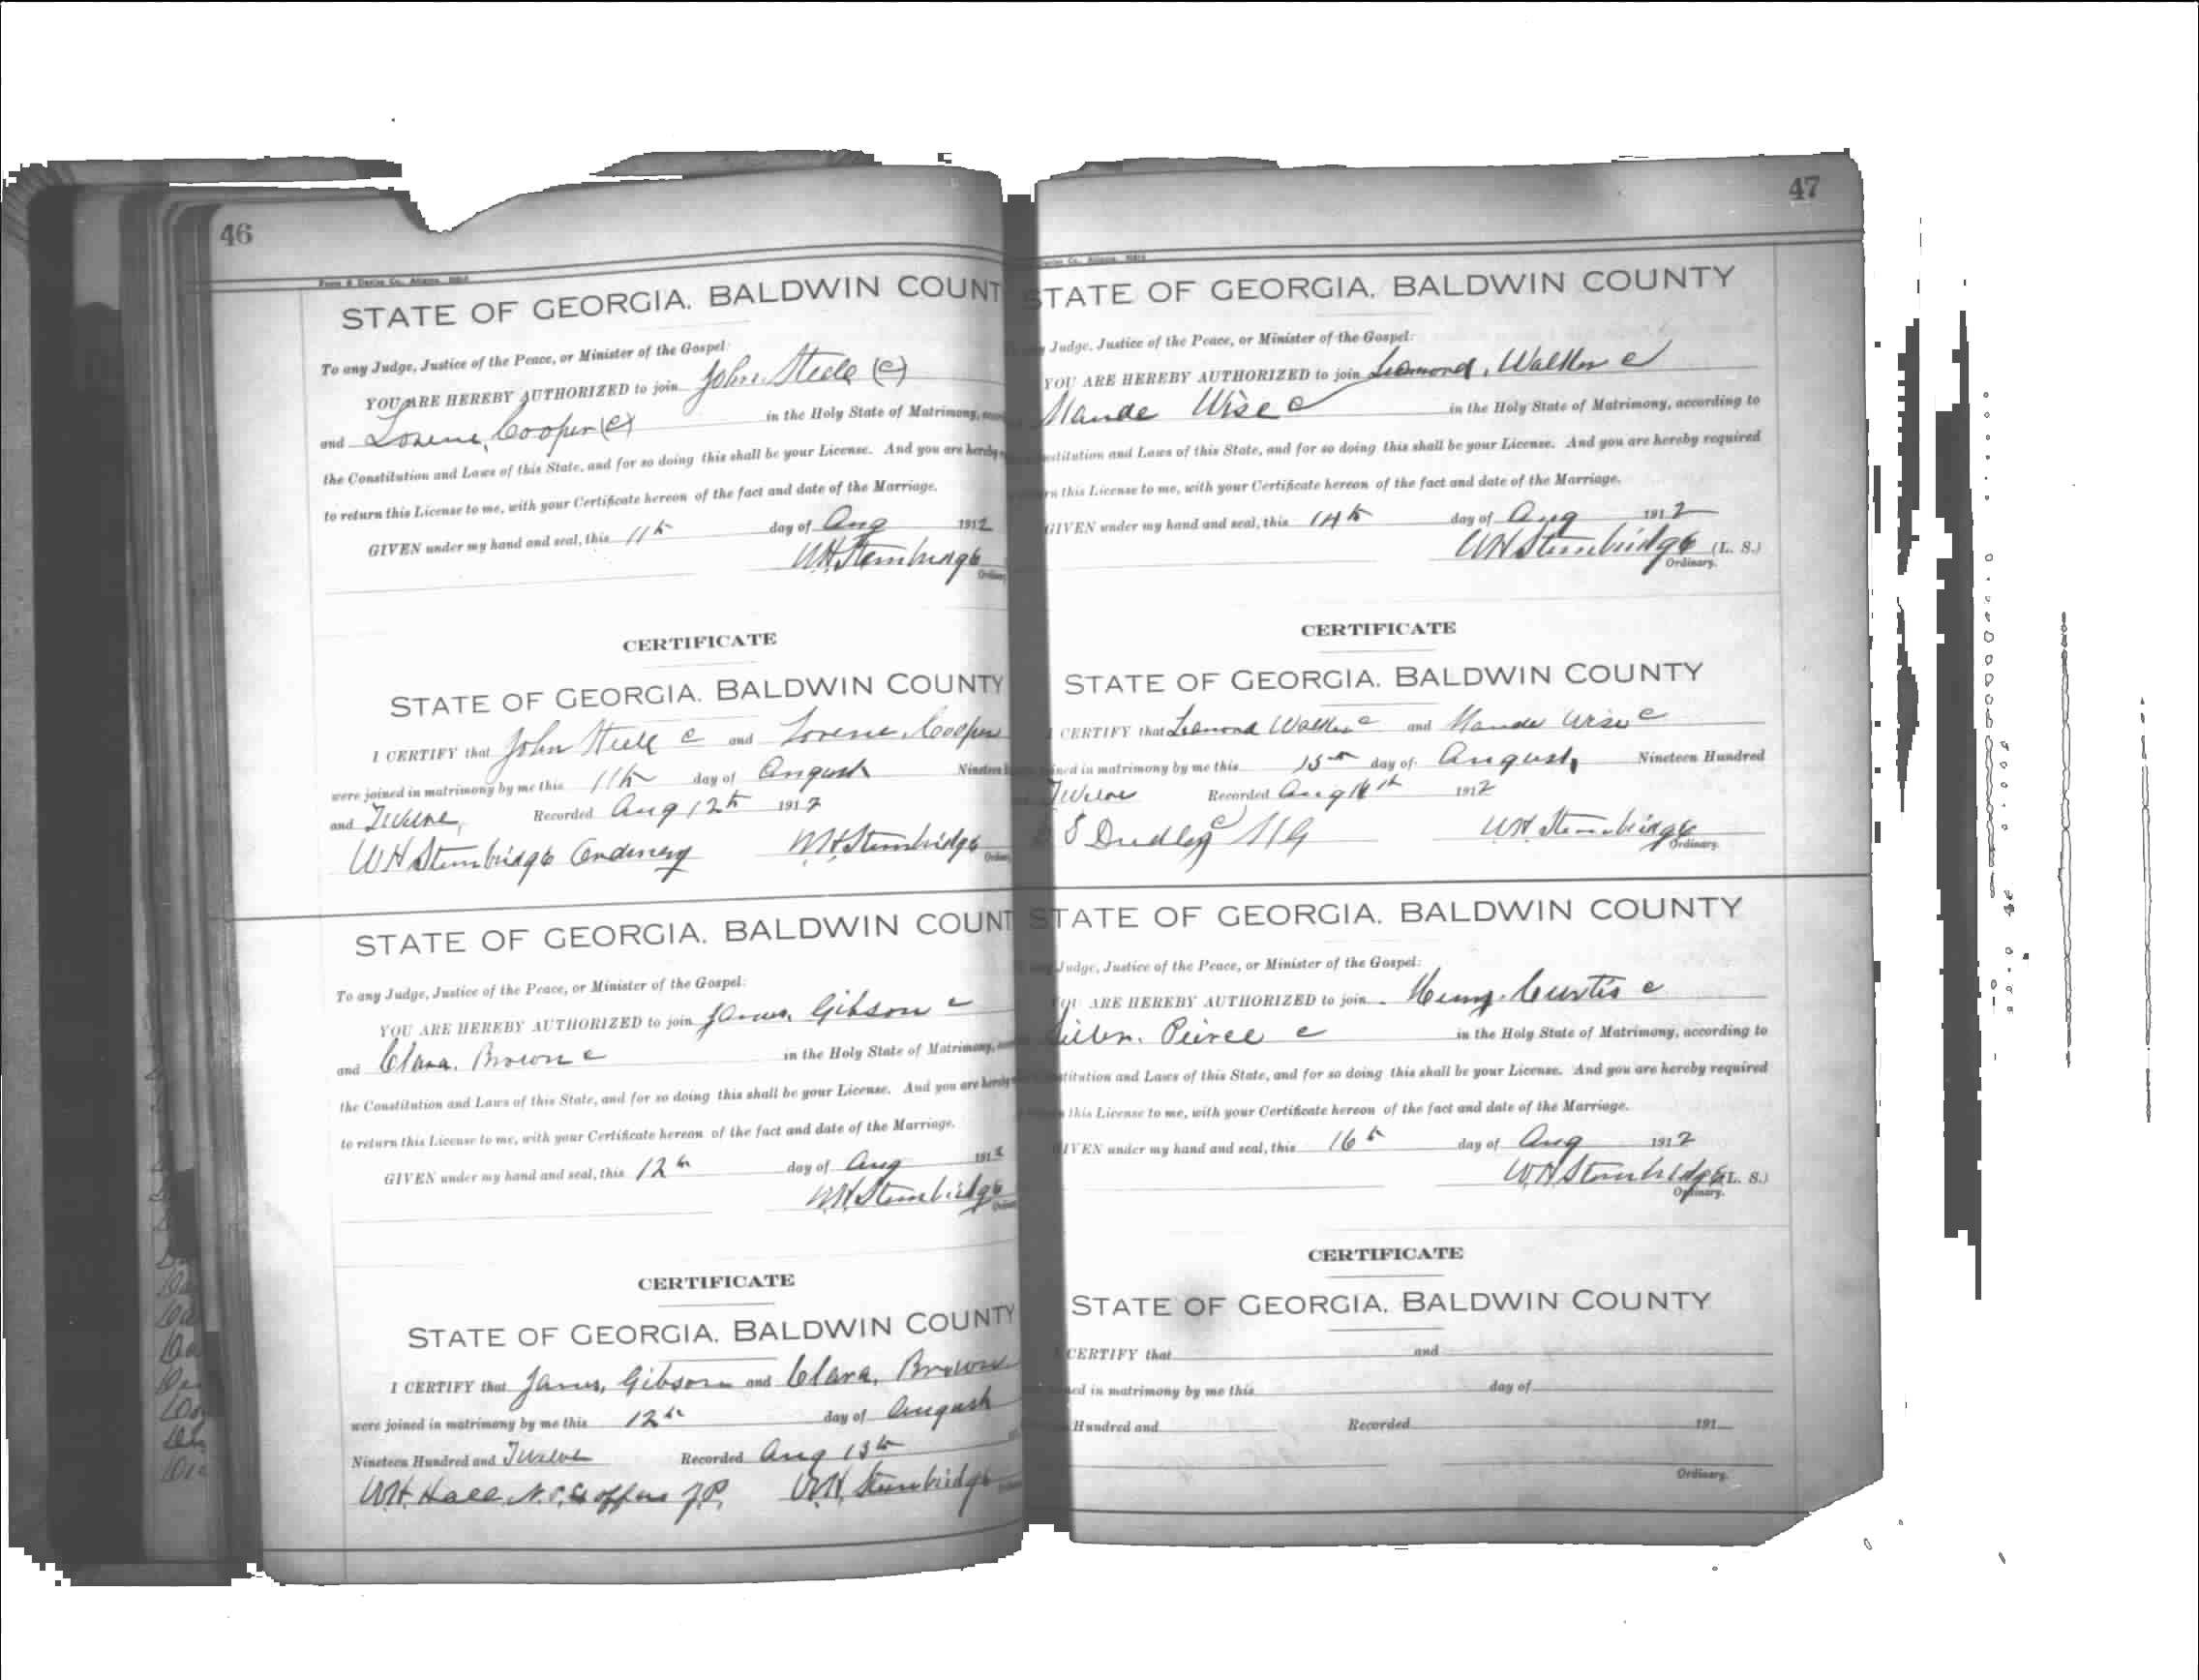 46
STATE OF GEORGIA. BALDWIN COUNT
To any Judge, Justice of the Peace, or Minister of the Gospel:
YOU ARE HEREBY AUTHORIZED to join John Steele (c)
and Lorene, Cooper (c) in the Holy State of Matrimony,
the Constitution and Laws of this State, and for so doing this shall be your License. And you are hereby
to return this License to me, with your Certificate hereon of the fact and date of the Marriage.
GIVEN under my hand and seal, this 11th day of Aug 1912
W.H. Stembridge
CERTIFICATE
STATE OF GEORGIA. BALDWIN COUNTY
I CERTIFY that John Steele c and Lorene, Cooper
were joined in matrimony by me this 11th day of August Nineteen
and Twelve, Recorded Aug 12th 1912
WH Stembridge Ordinary W.H. Stembridge
STATE OF GEORGIA. BALDWIN COUNT
To any Judge, Justice of the Peace, or Minister of the Gospel:
YOU ARE HEREBY AUTHORIZED to join James, Gibson c
and Clara. Brown c in the Holy State of Matrimony,
the Constitution and Laws of this State, and for so doing this shall be your License. And you are hereby
to return this License to me, with your Certificate hereon of the fact and date of the Marriage.
GIVEN under my hand and seal, this 12th day of Aug 1912
W.H. Stembridge
CERTIFICATE
STATE OF GEORGIA. BALDWIN COUNTY
I CERTIFY that James, Gibson and Clara, Brown
were joined in matrimony by me this 12th day of August
Nineteen Hundred and Twelve Recorded Aug 13th
W.H. Hall N.P. & J.P. W.H. Stembridge
47
STATE OF GEORGIA. BALDWIN COUNTY
Judge, Justice of the Peace, or Minister of the Gospel:
YOU ARE HEREBY AUTHORIZED to join Leamond, Walker c
Maude Wise c in the Holy State of Matrimony, according to
stitution and Laws of this State, and for so doing this shall be your License. And you are hereby required
this License to me, with your Certificate hereon of the fact and date of the Marriage.
GIVEN under my hand and seal, this 14th day of Aug 1912
WH Stembridge (L. S.)
Ordinary.
CERTIFICATE
STATE OF GEORGIA. BALDWIN COUNTY
CERTIFY that Leamond Walker c and Maude Wise c
ined in matrimony by me this 15th day of August, Nineteen Hundred
Twelve Recorded Aug 16th 1912
S Dudley c M G W.H. Stembridge
Ordinary.
STATE OF GEORGIA. BALDWIN COUNTY
Judge, Justice of the Peace, or Minister of the Gospel:
YOU ARE HEREBY AUTHORIZED to join Henry. Curtis c
Peirce c in the Holy State of Matrimony, according to
stitution and Laws of this State, and for so doing this shall be your License. And you are hereby required
this License to me, with your Certificate hereon of the fact and date of the Marriage.
GIVEN under my hand and seal, this 16th day of Aug 1912
W.H. Stembridge (L. S.)
Ordinary.
CERTIFICATE
STATE OF GEORGIA. BALDWIN COUNTY
CERTIFY that and
ed in matrimony by me this day of
Hundred and Recorded 191
Ordinary.